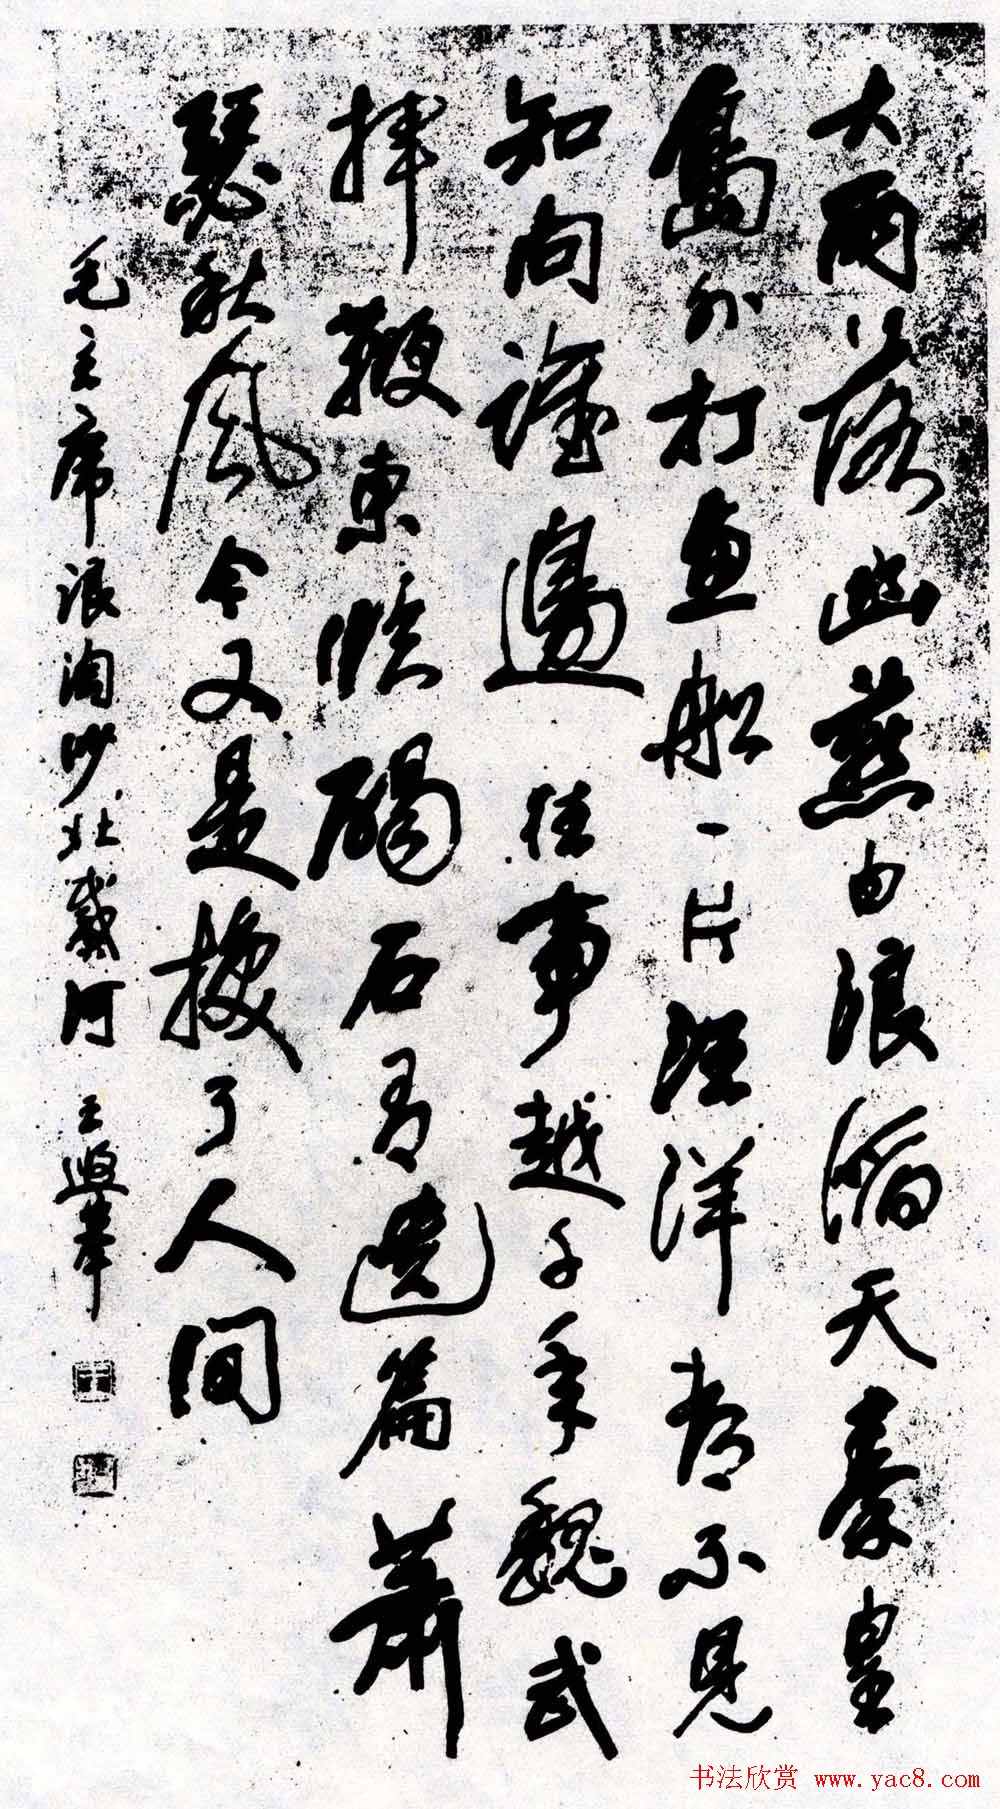 大雨落幽燕白浪滔天秦皇
島外打魚船一片汪洋都不見
知向誰邊 往事越千年魏武
揮鞭東臨碣石有遺篇蕭
瑟秋風今又是換了人間
毛主席浪淘沙北戴河 王遐举
书法欣赏 www.yac8.com